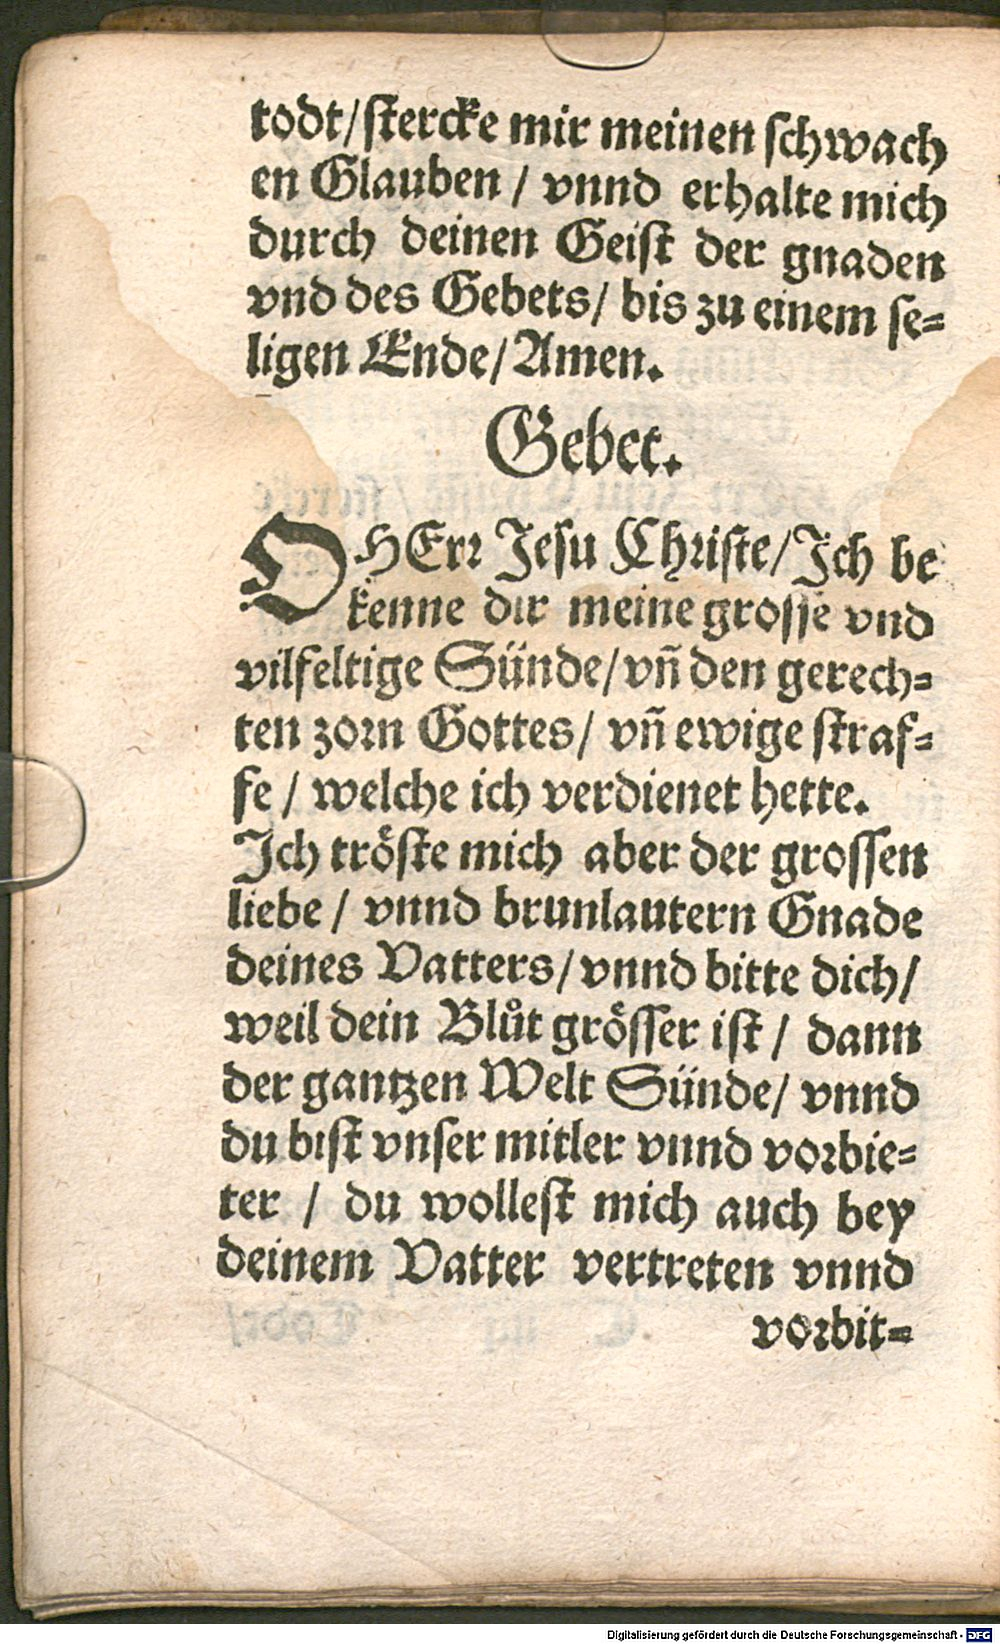 todt/ſtercke mir meinen ſchwach
en Glauben / vnnd erhalte mich
durch deinen Geiſt der gnaden
vnd des Gebets/ bis zu einem ſe⸗
ligen Ende/Amen.
Gebet.
O HErr Jeſu Chriſte/Ich be
kenne dir meine groſſe vnd
vilfeltige Sünde/vñ den gerech⸗
ten zorn Gottes/ vñ ewige ſtraf⸗
fe / welche ich verdienet hette.
Ich tröſte mich aber der groſſen
liebe / vnnd brunlautern Gnade
deines Vatters/vnnd bitte dich/
weil dein Blůt gröſſer iſt / dann
der gantzen Welt Sünde/ vnnd
du biſt vnſer mitler vnnd vorbie⸗
ter / du wolleſt mich auch bey
deinem Vatter vertreten vnnd
vorbit⸗
Digitalisierung gefördert durch die Deutsche Forschungsgemeinschaft - DFG